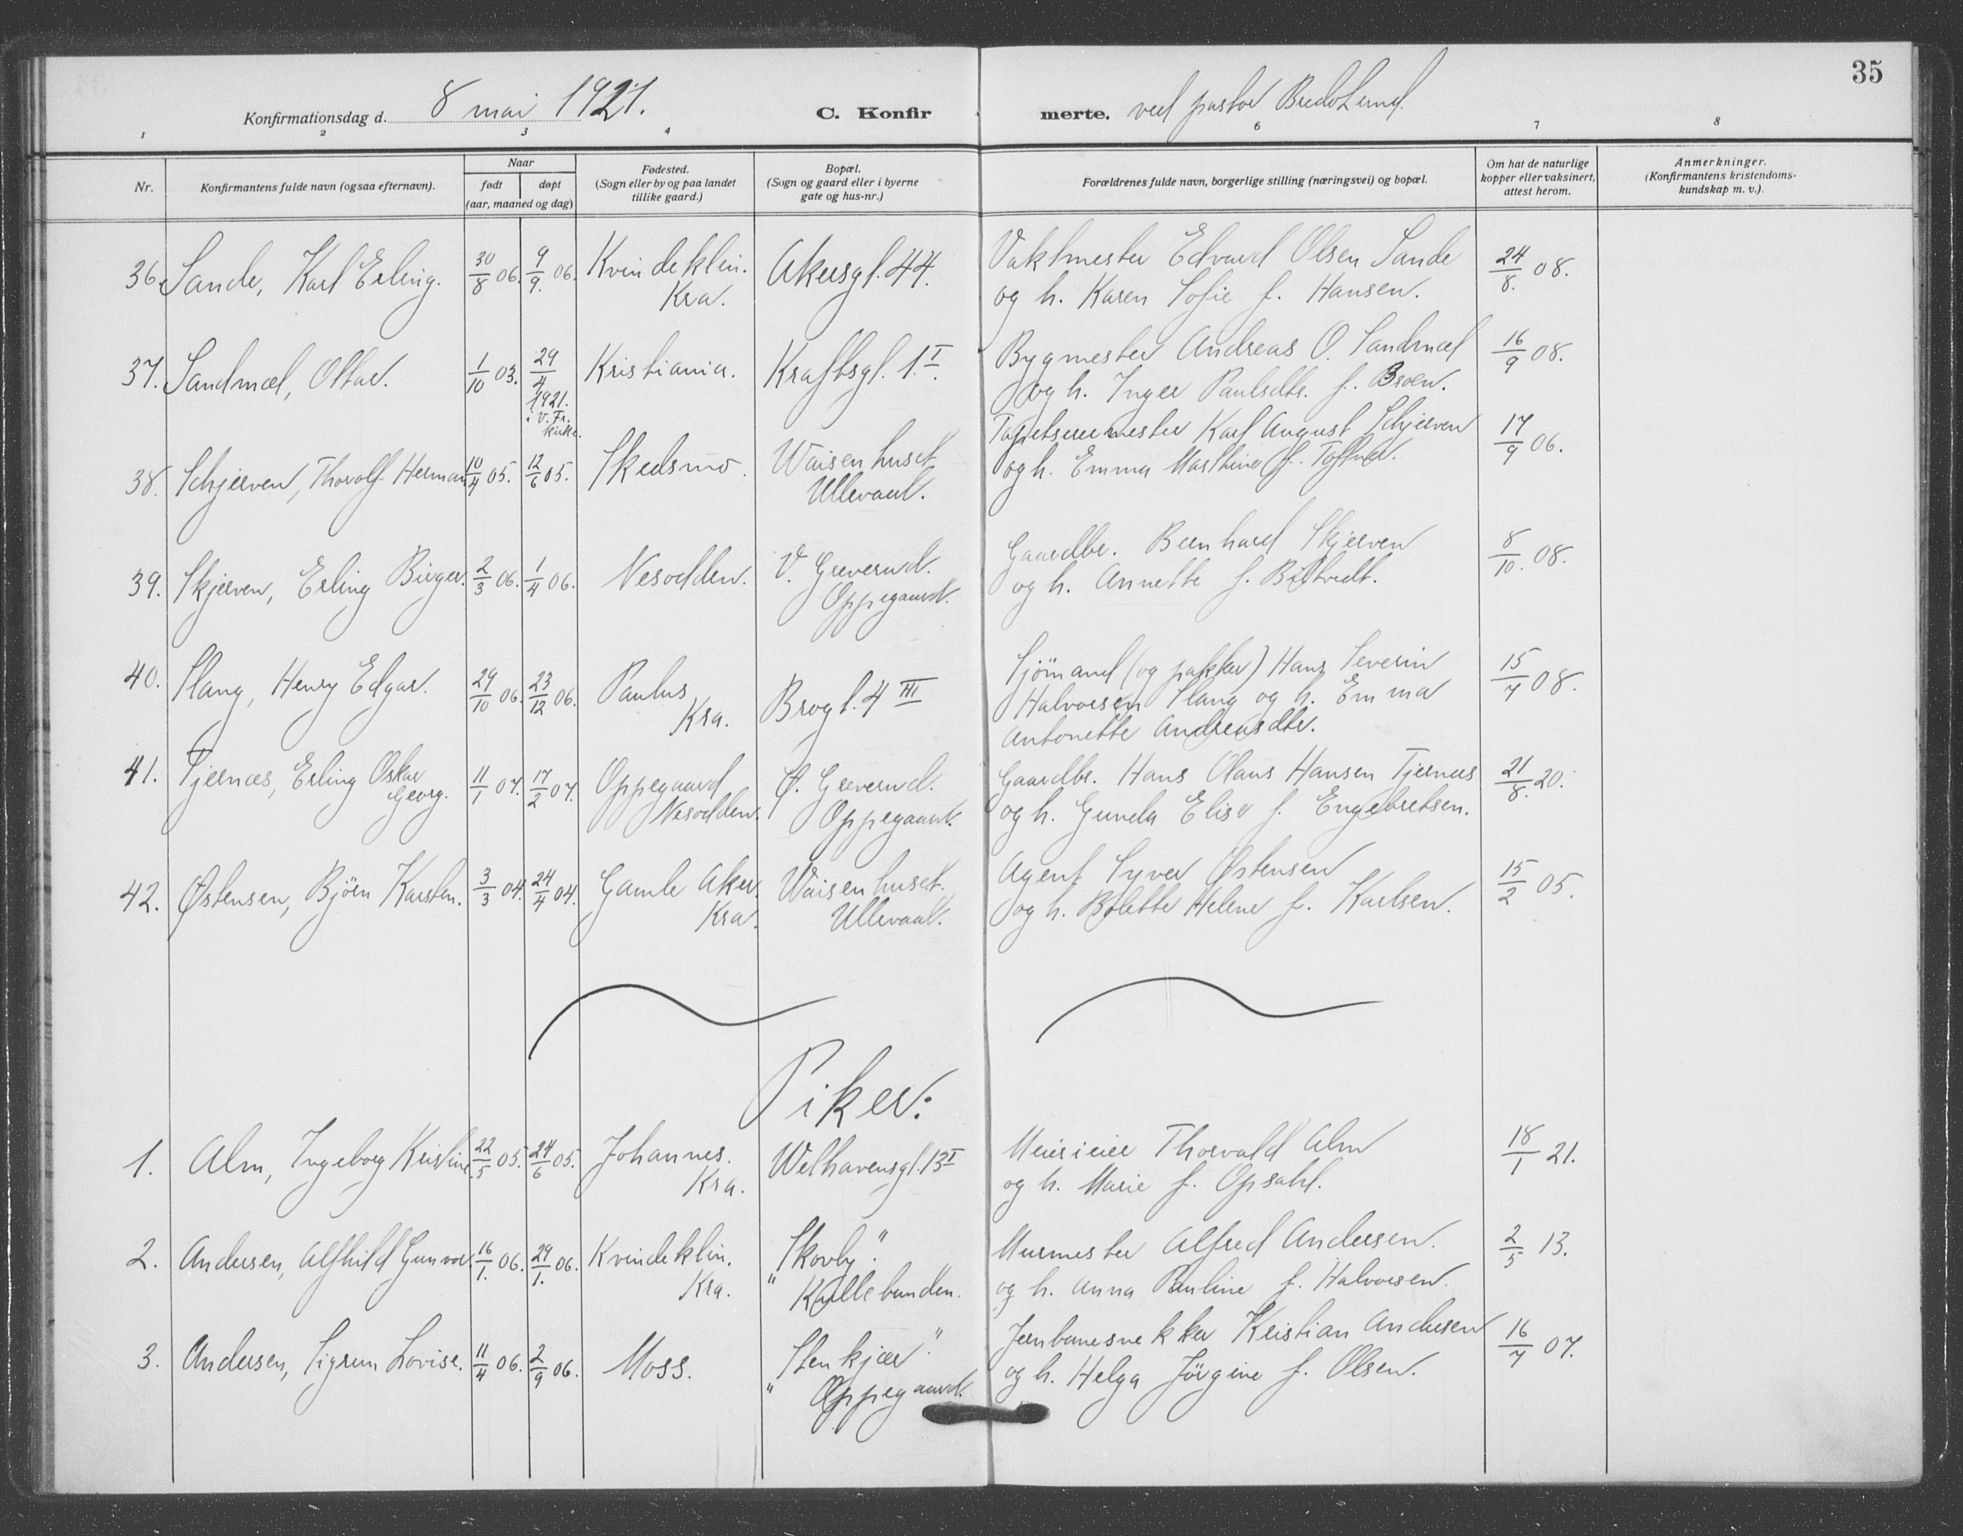 35
Konfirmationsdag d. 8 mai 1921. C. Konfirmerte. ved pastor Bredo Lund.
1 2 3 4 6 7 8
Nr. Konfirmantens fulde navn (ogsaa efternavn). Naar født døpt (aar, maaned og dag) Fødested. (Sogn eller by og paa landet tillike gaard.) Bopæl. (Sogn og gaard eller i byerne gate og hus-nr.) Forældrenes fulde navn, borgerlige stilling (næringsvei) og bopæl. Om hat de naturlige kopper eller vaksinert, attest herom. Anmerkninger. (Konfirmantens kristendomskundskap m. v.).
36. Sande, Karl Erling. 30/8 06. 9/9. 06. Kvindeklin. Akersgt. 44. Vaktmester Edvard Olsen Sande 24/8. 08.
Kra. og h. Karen Sofie f. Hansen.
37. Sandmæl, Ottar. 1/10 03. 29/4 1921. i V. Fr. kirke. Kristiania. Kraftsgt. 1 I. Bygmester Andreas O. Sandmæl 16/9 08.
og h. Inger Paulsdtr. f. Broen.
38. Schjerven, Thorolf Herman 10/4 05. 12/6 05. Skedsmo. Waisenhuset Tapetserermester Karl August Schjerven 17/9 06.
Ullevaal. og h. Emma Marthine f.
39. Skjerven, Erling Birger. 2/3 06. 1/4 06. Nesodden. V. Greverud. Gaardbr. Bernhard Skjerven 8/10. 08.
Oppegaard. og h. Annette f.
40. Slang, Henry Edgar. 29/10 06. 23/12 06. Paulus Brogt. 4 III Sjømand (og pakker) Hans Severin 15/7 08.
Kra. Halvorsen Slang og h. Emma
Antonette Andreasdtr.
41. Tjernæs, Erling Oskar 11/1 07. 17/2 07. Oppegaard Ø. Greverud. Gaardbr. Hans Olaus Hansen Tjernæs 21/8. 20.
Georg. Nesodden. Oppegaard. og h. Gunda Elise f. Engebretsen.
42. Østensen, Bjørn Karsten. 3/3 04. 24/4 04. Gamle Aker. Waisenhuset. Agent Syver Østensen 15/2 05.
Kra. Ullevaal. og h. Bolette Helene f. Karlsen.
Piker:
1. Alm, Ingeborg Kristine 22/5 05. 24/6 05. Johannes. Welhavensgt. 13 I Meierieier Thorvald Alm 18/1 21.
Kra. og h. Marie f. Opsahl.
2. Andersen, Alfhild Gunvor. 16/1. 06. 29/1. 06. Kvindeklin. "Skovby". Murmester Alfred Andersen. 2/5 13.
Kra. Kullebunden. og h. Anna Pauline f. Halvorsen.
3. Andersen, Sigrun Lovise. 11/4 06. 2/9 06. Moss. "Stenkjær". Jernbanesnekker Kristian Andersen 16/7 07.
Oppegaard. og h. Helga Jørgine f. Olsen.